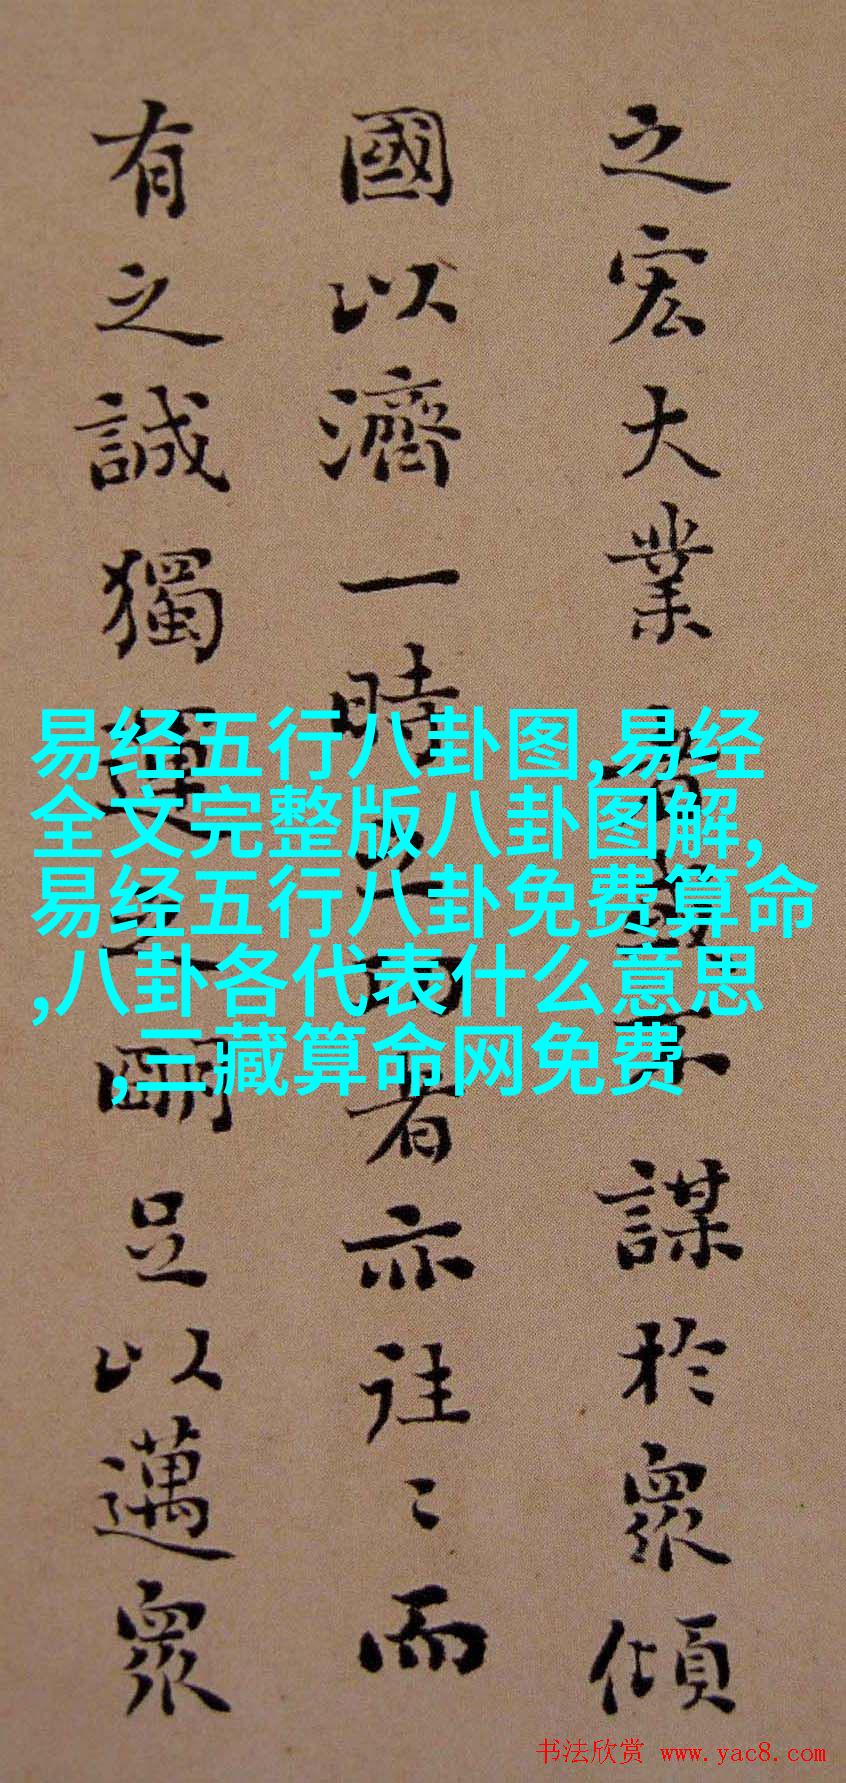 之宏大業
謀於衆傾
國以濟一時
者亦往々而
有之誠獨運
足以邁衆
易经五行八卦图,易经
全文完整版八卦图解,
易经五行八卦免费算命
,八卦各代表什么意思
,三藏算命网免费
书法欣赏 www.yac8.com